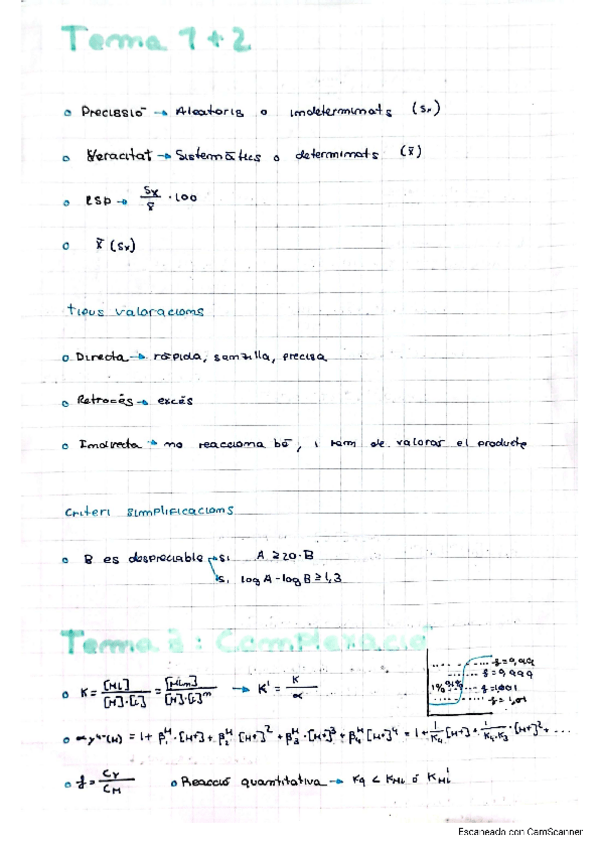 Tema 1 + 2
Precissió → Aleatoris o indeterminats (Sx)
Veracitat → Sistemàtics o determinats (x̄)
RSD → Sx/x̄ · 100
x̄ (Sx)
tipus valoracions
Directa → ràpida, senzilla, precisa
Retrocés → excés
Indirecta → no reacciona bé, i hem de valorar el producte
Criteri simplificacions
B es despreciable → si A ≥ 20·B
si log A - log B ≥ 1,3
Tema 3 : Complexació
f = 0,99
f = 0,999
1% 0,1% f = 1,001
f = 1,01
K = [ML]/[M]·[L] = [MLn]/[M]·[L]ⁿ → K' = K/α
αy⁴⁻(H) = 1 + β₁ᴴ·[H+] + β₂ᴴ·[H+]² + β₃ᴴ·[H+]³ + β₄ᴴ[H+]⁴ = 1 + 1/K₄[H+] + 1/K₄·K₃·[H+]² + ...
f = Cy/CM Reacció quantitativa → Kq < KML ó K'ML
Escaneado con CamScanner